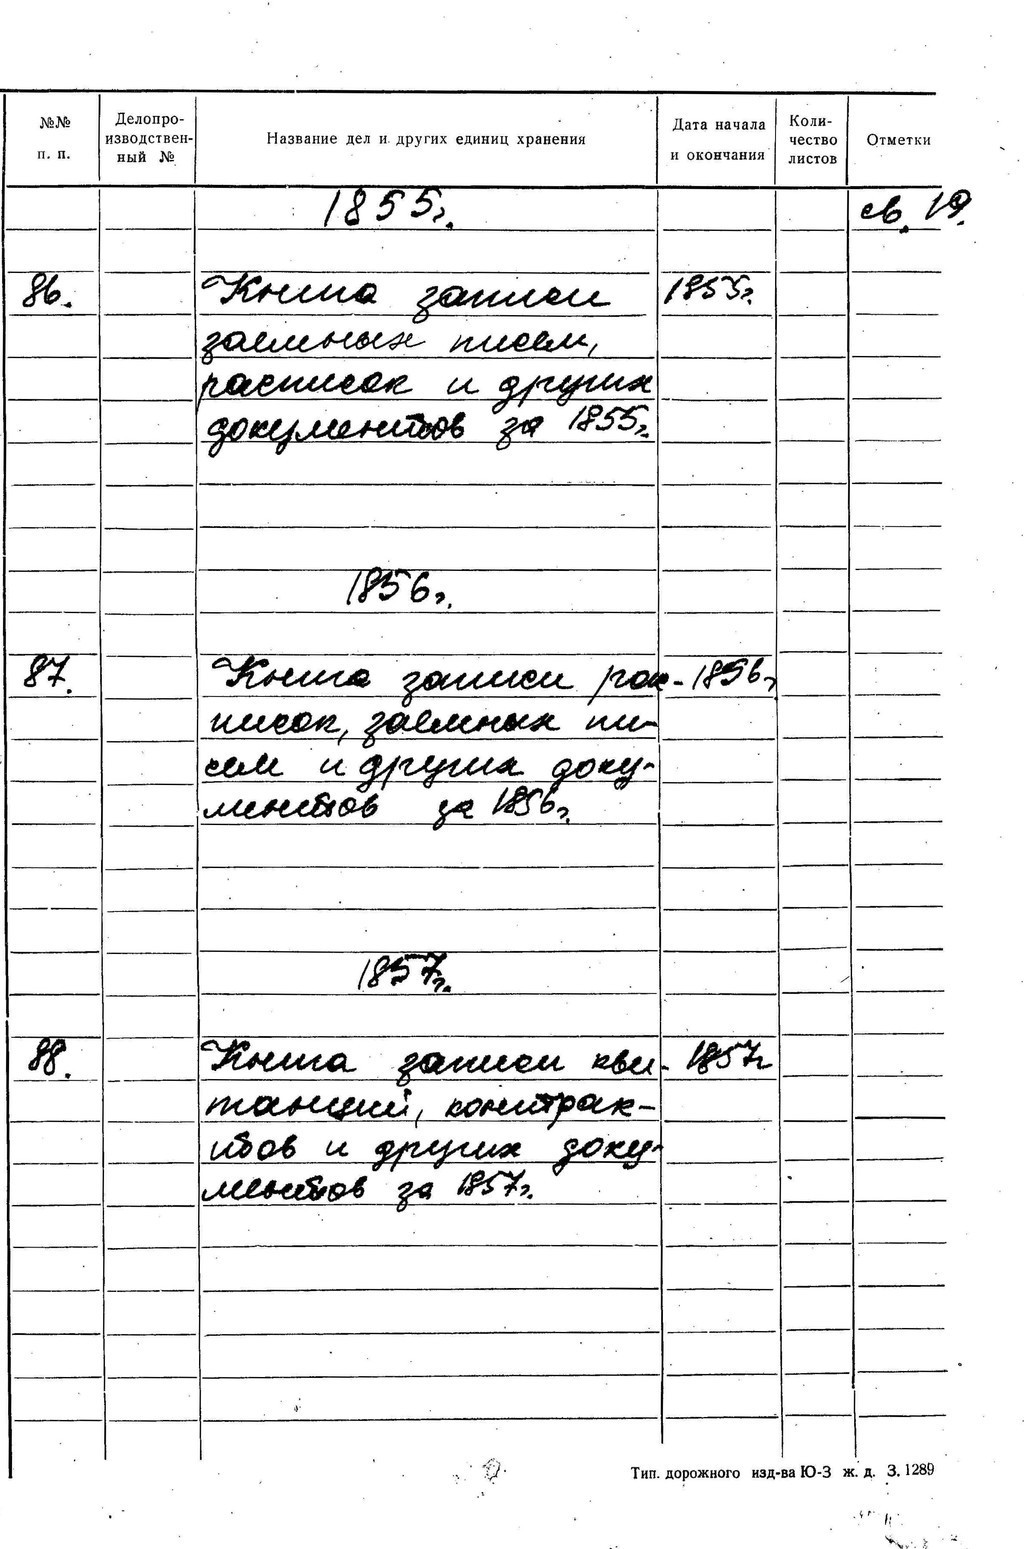 №№ п. п.
Делопро-
изводствен-
ный №
Название дел и других единиц хранения
Дата начала
и окончания
Коли-
чество
листов
Отметки
1855г.
св. 19.
86.
Книга записи
1855г.
заемных писем,
расписок и других
документов за 1855г.
1856г.
87.
Книга записи рас-
1856г
писок, заемных пи-
сем и других доку-
ментов за 1856г.
1857г.
88.
Книга записи кви-
1857г
танций, контрак-
тов и других доку-
ментов за 1857г.
Тип. дорожного изд-ва Ю-З ж. д. З. 1289